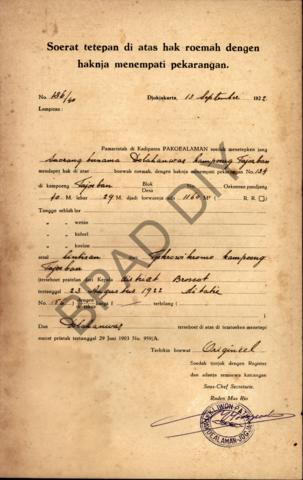 Soerat tetepan di atas hak roemah dengen
haknja menempati pekarangan.
No. 136/40 Djokjakarta, 13 September 1922
Lampiran:
Pamarentah di Kadipaten PAKOEALAMAN soedah menetepken jang
Saorang bernama Delahanwas kampoeng Tajoban
mendapet hak di atas boewah roemah, dengen haknja menempati pekarangan No. 134
di kampoeng Tajoban Blok Desa Oekooran pandjang
40 M. lebar 29 M. djadi loewasnja ada 1160 M² R. R.
Tangga sebelah lor
" " wetan
" " kidoel
" " koelon
asal lintiran dari Tjokrowikromo kampoeng
Tajoban
terseboet pratelan dari Kepala district Brosot
tertanggal 23 Augustus 1922
No. 156 harga f terbilang
Dan Delahanwas terseboet di atas di toeroetken menetepi
soerat prentah tertanggal 29 Juni 1903 No. 959/A.
Terbikin boewat Origineel
Soedah tjotjok dengen Register
dan adanja semoewa katrangan
Sous-Chef Secretarie,
Raden Mas Rio
BRAD DIY